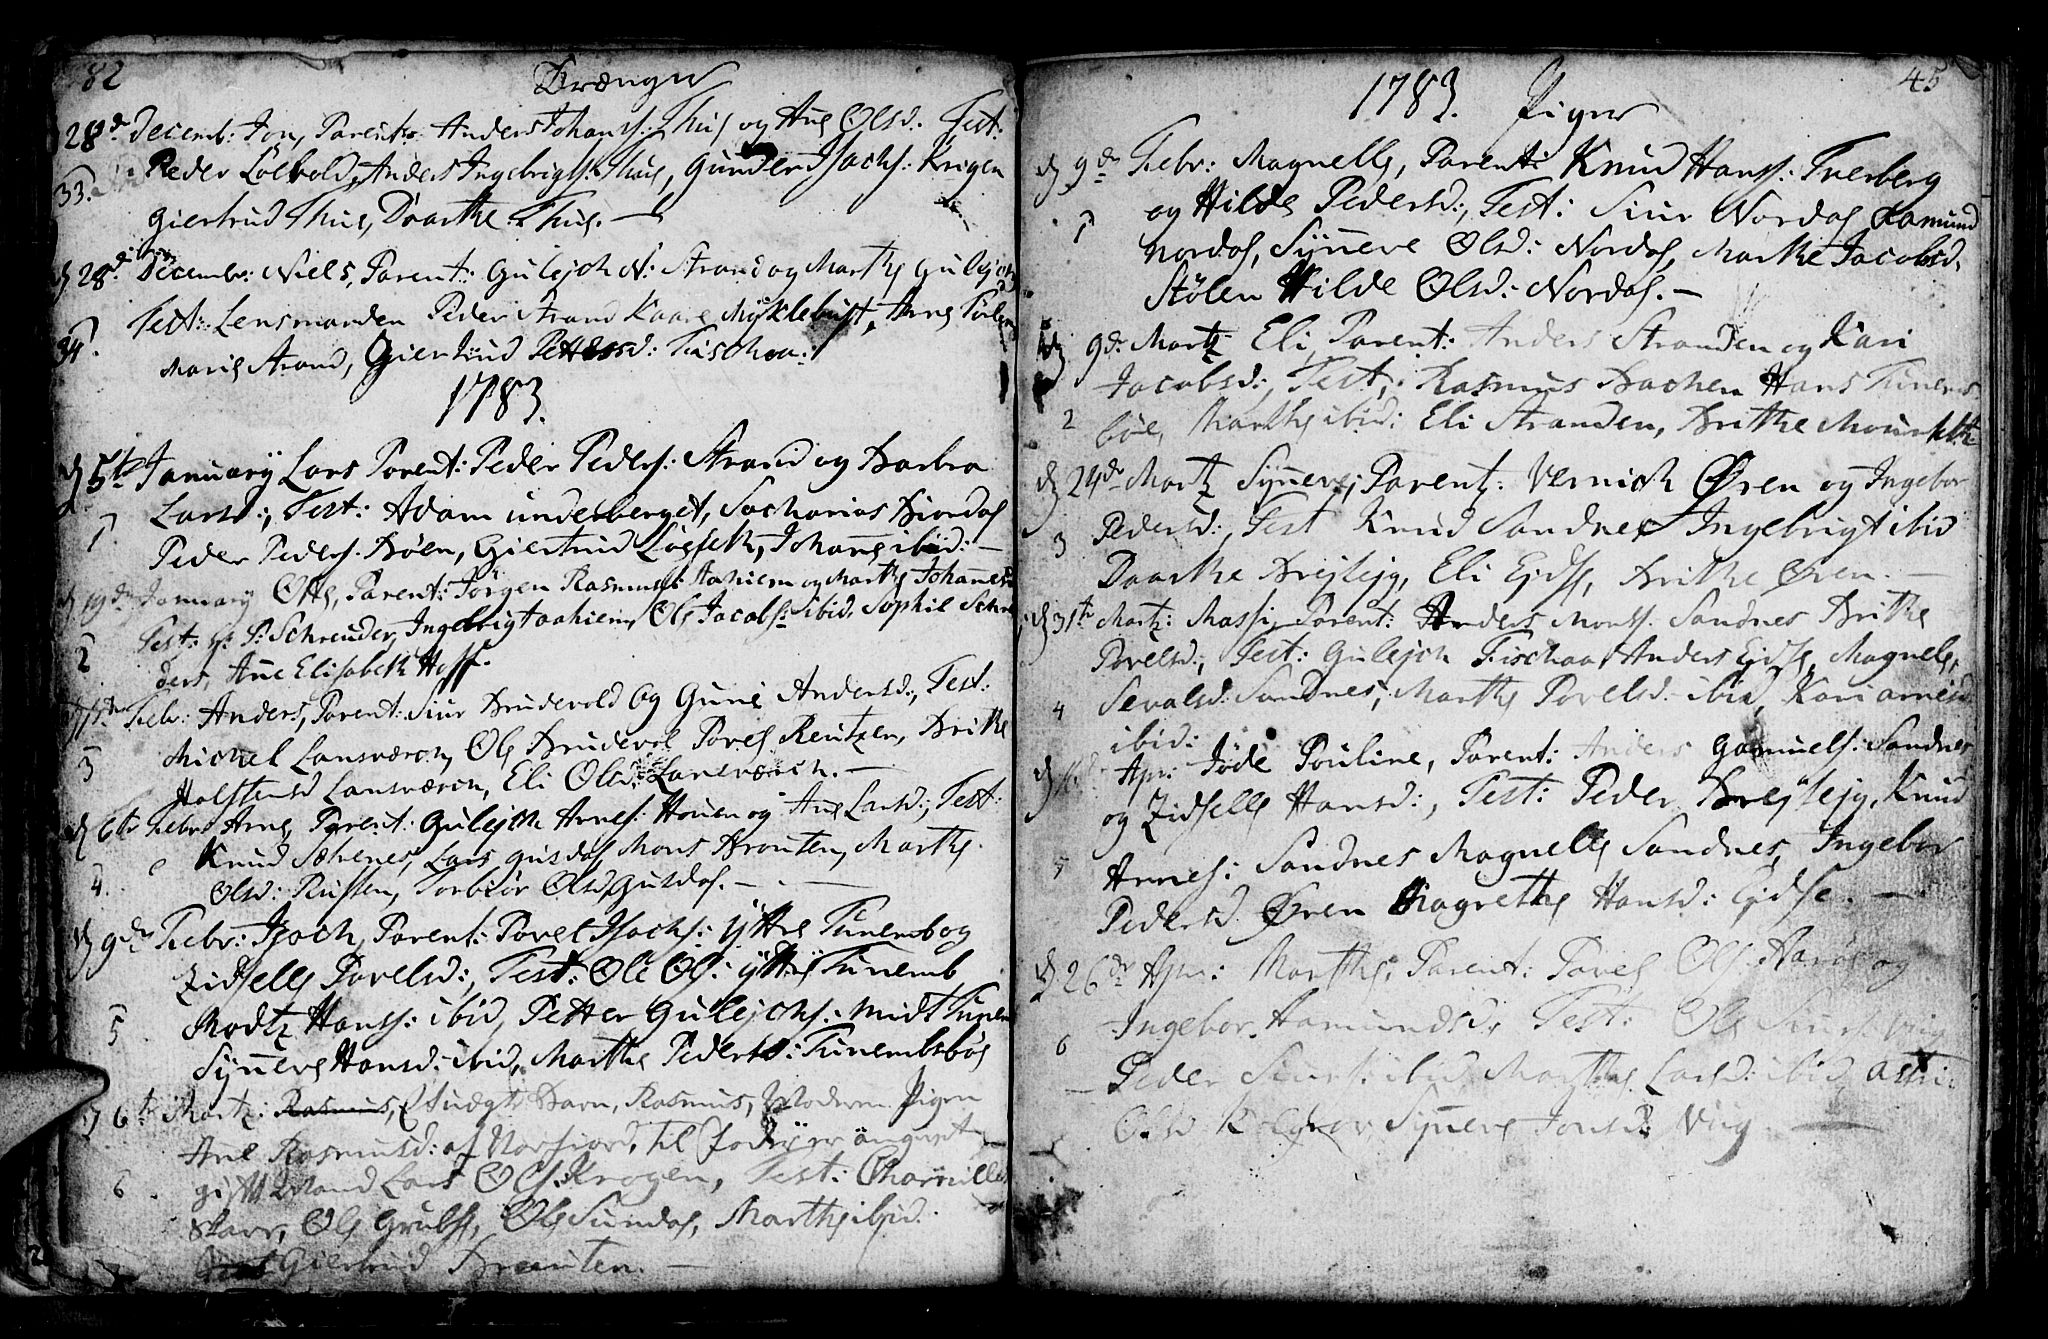 82 Drænger
28de Decemb: Jon, Parent: Anders Johans: Thue og Ane Olsd: Test:
Peder Løevold, Anders Ingebrigts: Thue, Gunder Isachs: Krigen
33.
Giertrud Thue, Daarthe Thue. —
d 28de Decembr: Niels, Parent: Gulejch N: Strand og Marthe Gulejch
Test: Lensmanden Peder Strand Kaare Myklebust, Arne
34.
Marie Strand, Giertrud Pettersd: Fischaa:
1783.
d 5te January Lars Parent: Peder Peders: Strand og Barbra
Larsd:, Test: Adam underberget, Sacharias Biørdal
1
Peder Peders: Bøen, Giertrud Løeseth, Johane ibid: —
d 19de January Otte, Parent: Jørgen Rasmus: Aahiem og Marthe Johannes
Test: Hr P: Schreuder, Ingebrigt Aahiem, Ole Jacobs: ibid, Sophie Schreu
2
ders, Ane Elisabeth Hoff.
Febr: Anders, Parent: Siur Brudevold og Gune Andersd:, Test:
Michel Lansværch, Ole Brudevol Povel Reutzen, Brithe
3
Holstensd Lansværch, Eli Olsd: Lansværch. —
d 6te Febr Arne, Parent: Gulejch Arnes: Houen og Ane Larsd:, Test:
Knud Sætrenes, Lars Gusdal, Mons Brouten, Marthe
4.
Olsd: Rusten, Torbiør Olsd, Gusdal. —
d 9de Febr: Isach, Parent: Povel Isachs: yttre Tunemb og
Zidselle Povelsd:, Test: Ole Ols: yttre Tunemb
Madtz Hanss: ibid, Petter Gulejchs: Midt Tunem
5
Synneve Hansd: ibid, Marthe Pedersd: Tunembsbøe
d 6te Martz: Rasmus, Uægte Barn, Rasmus, Moderen Pigen
Ane Rasmusd: af Norfiord, til Fader er angivet
gift Mand Lars Ols: Krogen, Test:
6
Skarr, Ole Grubsse, Ole Sundal, Marthe ibid:
Giertrud Brouten. —
1783. Piger 45
d 9de Febr: Magnelle, Parent: Knud Hanss: Tverberg
og Hilde Pedersd:, Test: Siur Nordal Aamund
1
Nordal, Synneve Olsd: Nordal, Marthe Jacobsd.
Stølen Hilde Olsd: Nordal. —
d 9de Martz Eli, Parent: Anders Stranden og Kari
Jacobsd:, Test: Rasmus Bachen Hans Tunems
2
bøe, Marthe ibid: Eli Stranden, Brithe
d 24de Martz Synneve, Parent: Vernich Øren og Ingebor
Pedersd:, Test Knud Sandnes Ingebrigt ibid
3
Daarthe Brejlejg, Eli Ejdss, Brithe Øren. —
d 31te Martz: Massi, Parent: Anders Monss: Sandnes Brithe
Povelsd:, Test: Gulejch Fischaa, Anders Ejdse, Magnele
Sevalsd: Sandnes, Marthe Povelsd: ibid, Kari Arnesd
4
ibid:
Apr: Jøde Pouline, Parent: Anders Gamuels: Sandnes
og Zidselle Hansd:, Test: Peder Brejlejg, Knud
5
Arnes: Sandnes Magnelle Sandnes, Ingebor
Pedersd Øren Magrethe Hansd: Ejdse. —
d 26de Apr: Marthe, Parent: Povel Ols: Aarøe og
Ingebor Aamundsd, Test: Ole Siurs: Viig
6
Peder Siurs: ibid Marthe Larsd: ibid Astri
Olsd Synneve Jonsd: Viig. —